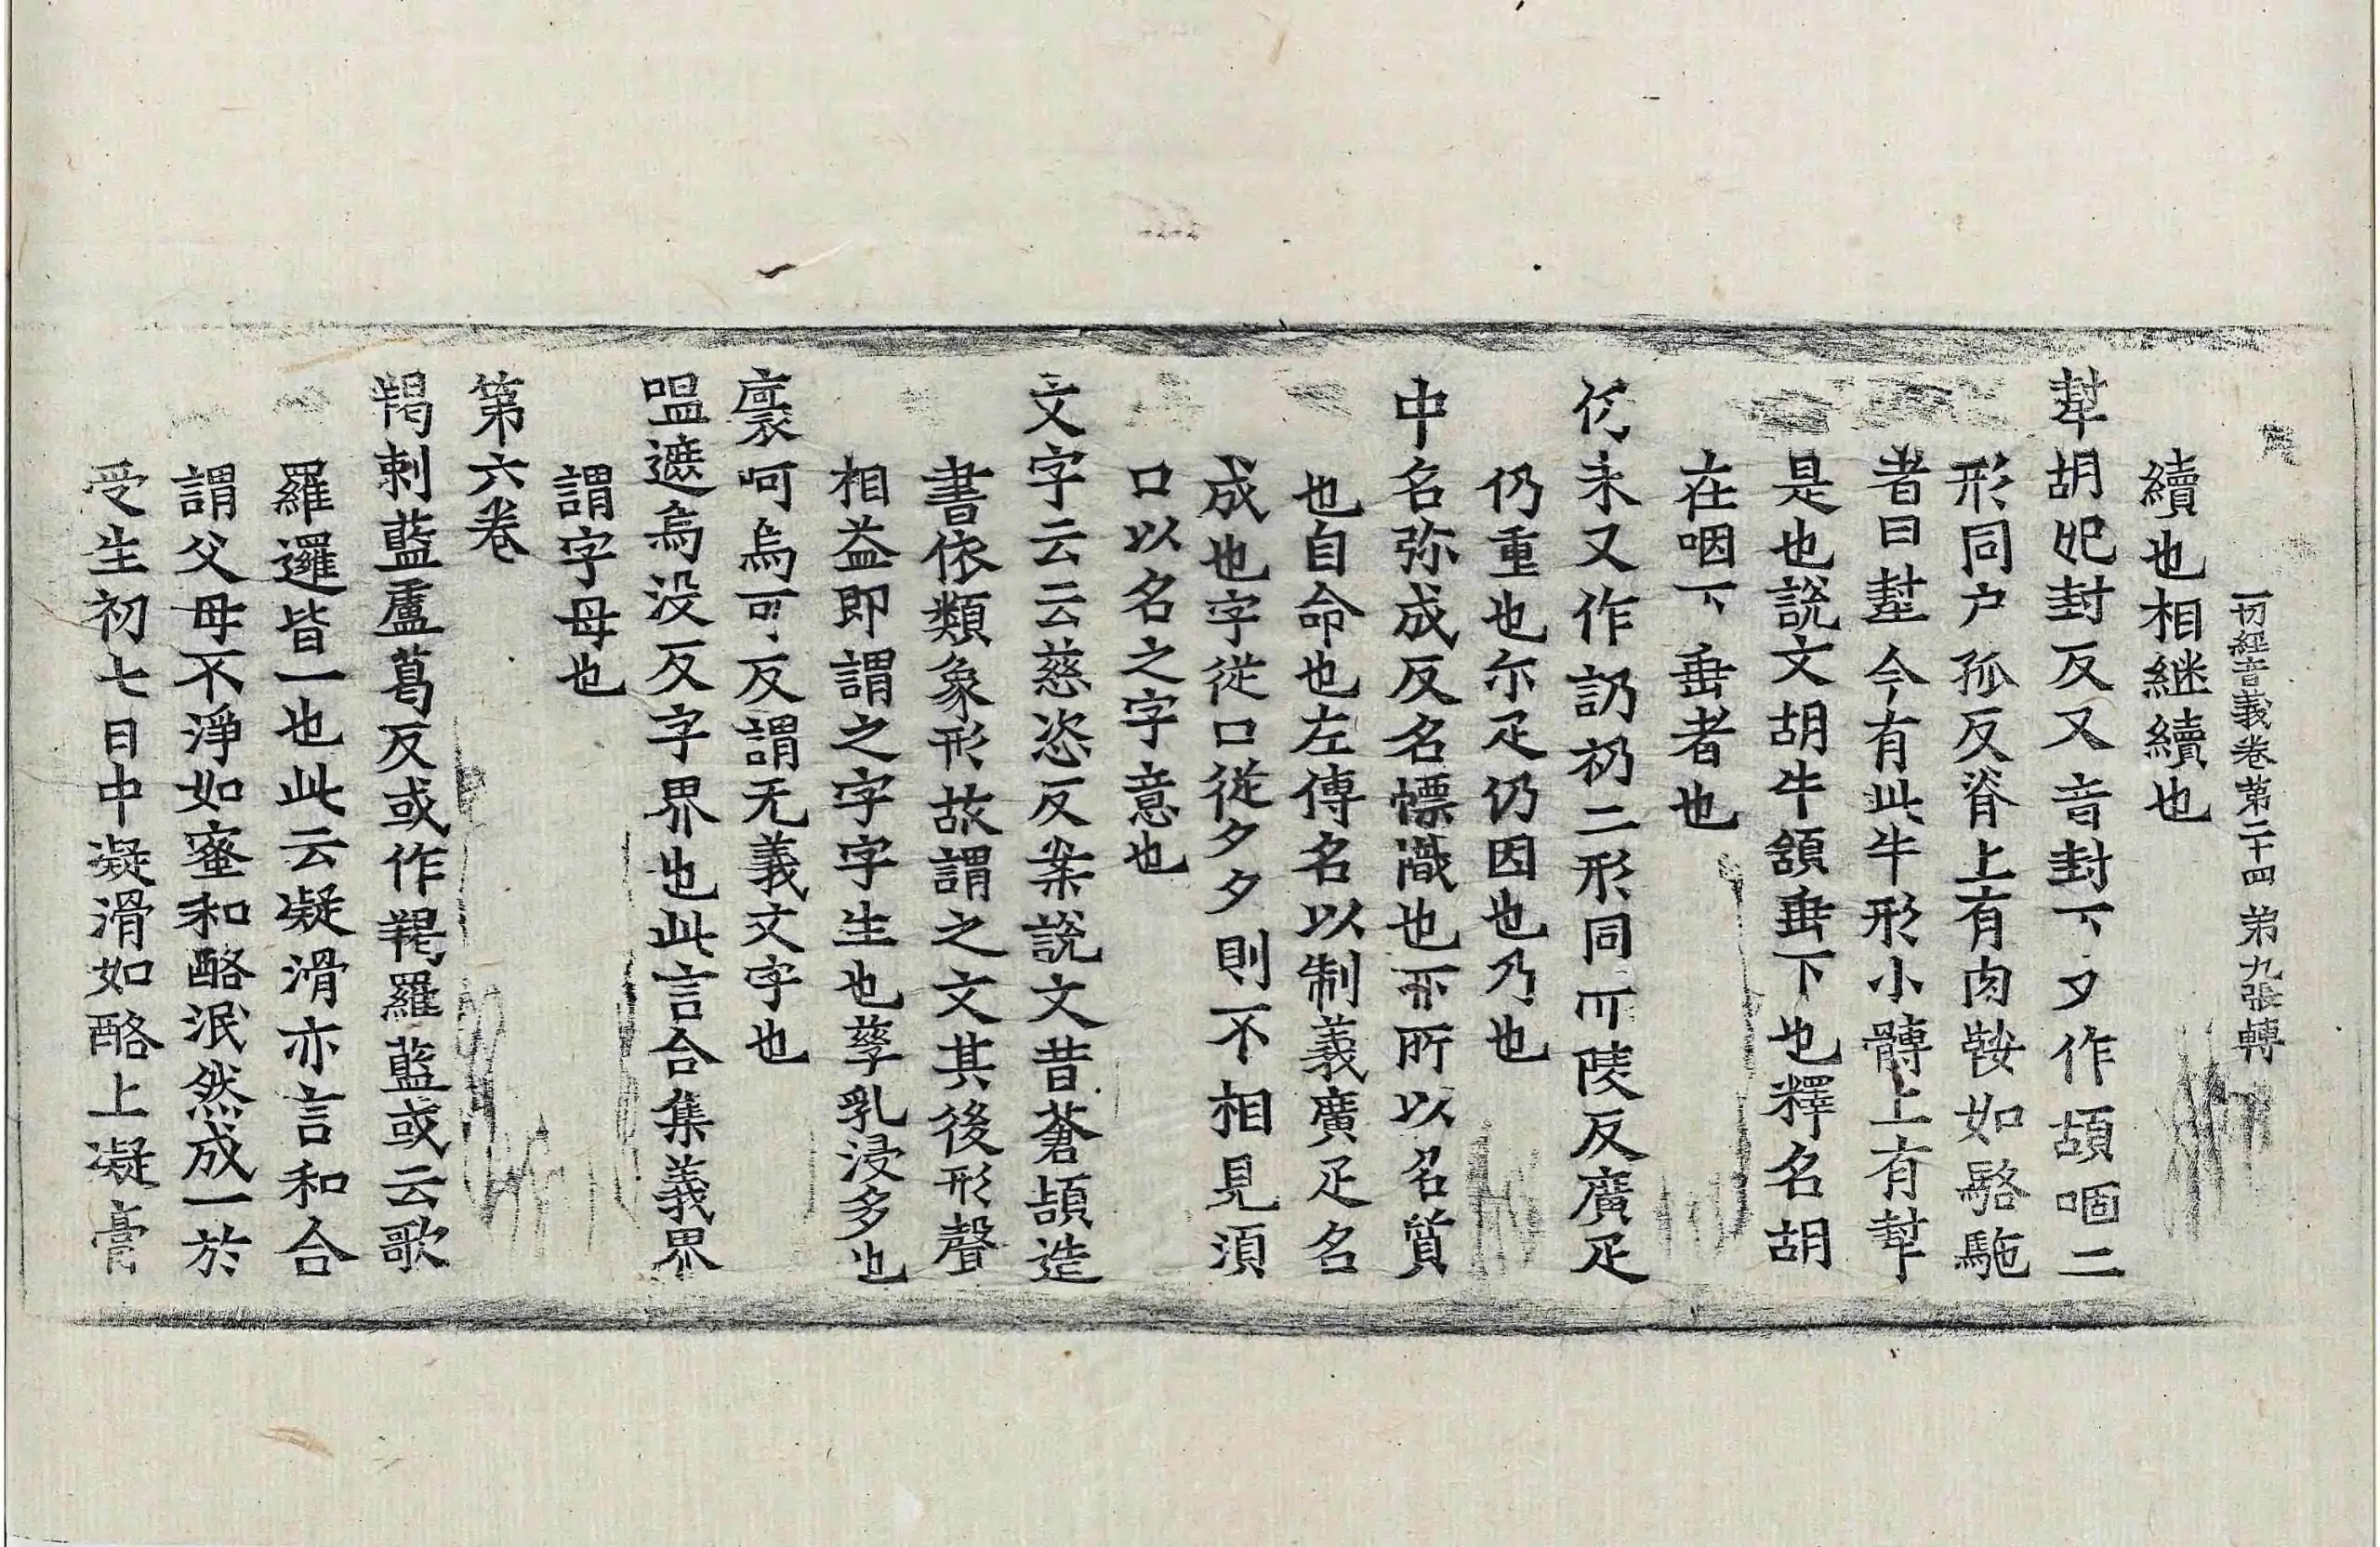 一切經音義卷第二十四 第九張 轉
續也相継續也
犎胡妃封反又音封下夕作頡咽二
形同户孤反脊上有肉鞍如駱駞
者曰犎今有此牛形小髆上有犎
是也說文胡牛頷垂下也釋名胡
在咽下垂者也
仍未又作訒礽二形同而陵反廣疋
仍重也尒疋仍因也乃也
中名弥成反名憡幟也所以名質
也自命也左傳名以制義廣疋名
成也字従口従夕夕則不相見須
口以名之字意也
文字云云慈恣反案說文昔蒼頡造
書依類象形故謂之文其後形聲
相益即謂之字字生也孳乳浸多也
裛呵烏可反謂无義文字也
嗢遮烏没反字界也此言合集義界
謂字母也
第六卷
羯剌藍盧葛反或作羯羅藍或云歌
羅邏皆一也此云凝滑亦言和合
謂父母不淨如蜜和酪泯然成一於
受生初七日中凝滑如酪上凝膏